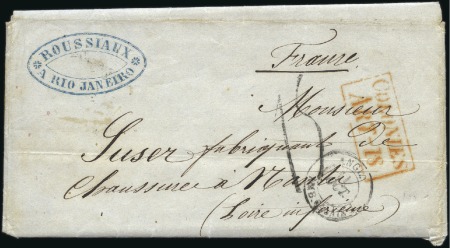 ROUSSIAUX
A RIO JANEIRO
France
COLONIES
ART. 18
Monsieur
Suser fabriquant De
Chaussures à Nantes
(Loire inférieure)